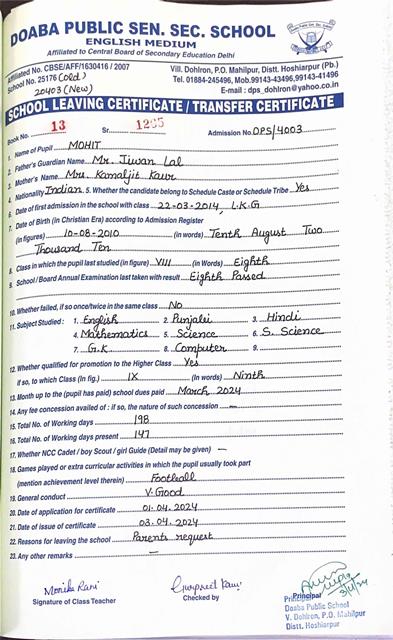 DOABA PUBLIC SEN. SEC. SCHOOL
ENGLISH MEDIUM
Affiliated to Central Board of Secondary Education Delhi
Affiliated No. CBSE/AFF/1630416 / 2007
School No. 25176 (Old)
20403 (New)
Vill. Dohlron, P.O. Mahilpur, Distt. Hoshiarpur (Pb.)
Tel. 01884-245496, Mob.99143-43496,99143-41496
E-mail : dps_dohlron@yahoo.co.in
SCHOOL LEAVING CERTIFICATE / TRANSFER CERTIFICATE
Book No. 13 Sr. 1265 Admission No. DPS/4003
1. Name of Pupil MOHIT
2. Father's Guardian Name Mr. Jiwan Lal
3. Mother's Name Mrs. Kamaljit Kaur
4. Nationality Indian 5. Whether the candidate belong to Schedule Caste or Schedule Tribe Yes
6. Date of first admission in the school with class 22-03-2014, L.K.G
7. Date of Birth (in Christian Era) according to Admission Register
(in figures) 10-08-2010 (in words) Tenth August Two
Thousand Ten
8. Class in which the pupil last studied (in figure) VIII (in Words) Eighth
9. School / Board Annual Examination last taken with result Eighth Passed
10. Whether failed, if so once/twice in the same class No
11. Subject Studied : 1. English 2. Punjabi 3. Hindi
4. Mathematics 5. Science 6. S. Science
7. G.K 8. Computer 9.
12. Whether qualified for promotion to the Higher Class Yes
if so, to which Class (In fig.) IX (In words) Ninth
13. Month up to the (pupil has paid) school dues paid March 2024
14. Any fee concession availed of : if so, the nature of such concession —
15. Total No. of Working days 198
16. Total No. of Working days present 147
17. Whether NCC Cadet / boy Scout / girl Guide (Detail may be given) —
18. Games played or extra curricular activities in which the pupil usually took part
(mention achievement level therein) Football
19. General conduct V. Good
20. Date of application for certificate 01.04.2024
21. Date of issue of certificate 03.04.2024
22. Reasons for leaving the school Parents request
23. Any other remarks —
Monika Rani
Signature of Class Teacher
Gurpreet Kaur
Checked by
3/4/24
Principal
Principal
Doaba Public School
V. Dohlron, P.O. Mahilpur
Distt. Hoshiarpur